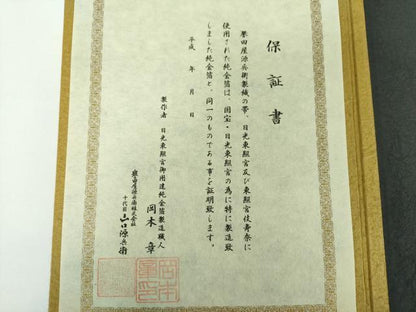 保証書
誉田屋源兵衛製織の帯、日光東照宮及び東照宮伎寿祭に
使用された純金箔は、国宝・日光東照宮の為に特に製造致
しました純金箔と、同一のものである事を証明致します。
平成　年　月　日
製作者　日光東照宮御用達純金箔製造職人
岡本　章
誉田屋源兵衛株式会社
十代目　山口源兵衛